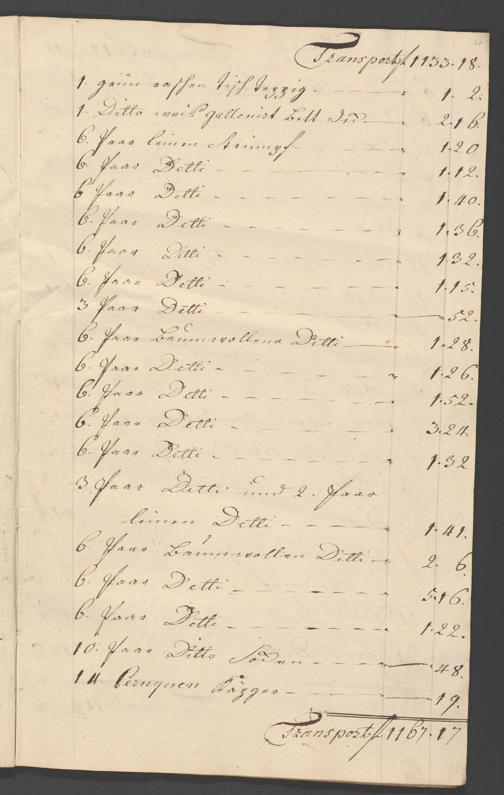 Transport f 1133.18.
1. grün raschen tisch teppig - 1. 2.
1. Ditto weis gallonirt bett - 2.16.
6. Paar leinen Strümpf - 1.20
6. Paar Detti - 1.12.
6 Paar Detti - 1.40.
6. Paar Detti - 1.36.
6. Paar Ditti - 1.32.
6. Paar Detti - 1.15.
3 Paar Detti - 52.
6. Paar Baumwollene Detti - 1.28.
6. Paar Detti - 1.26.
6. Paar Detti - 1.52.
6. Paar Detti - 3.24.
6. Paar Detti - 1.32
3 Paar Detti und 2. Paar
leinen Detti - 1.41.
6 Paar Baumwollen Ditti - 2. 6.
6. Paar Detti - 5.16.
6. Paar Detti - 1.22.
10. Paar Ditto Soden - 48.
14. Peruquen - 19.
Transport f 1167.17